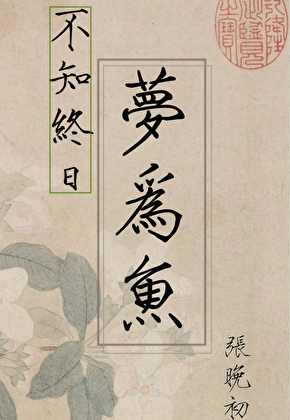 不知終日
夢爲魚
張晚初